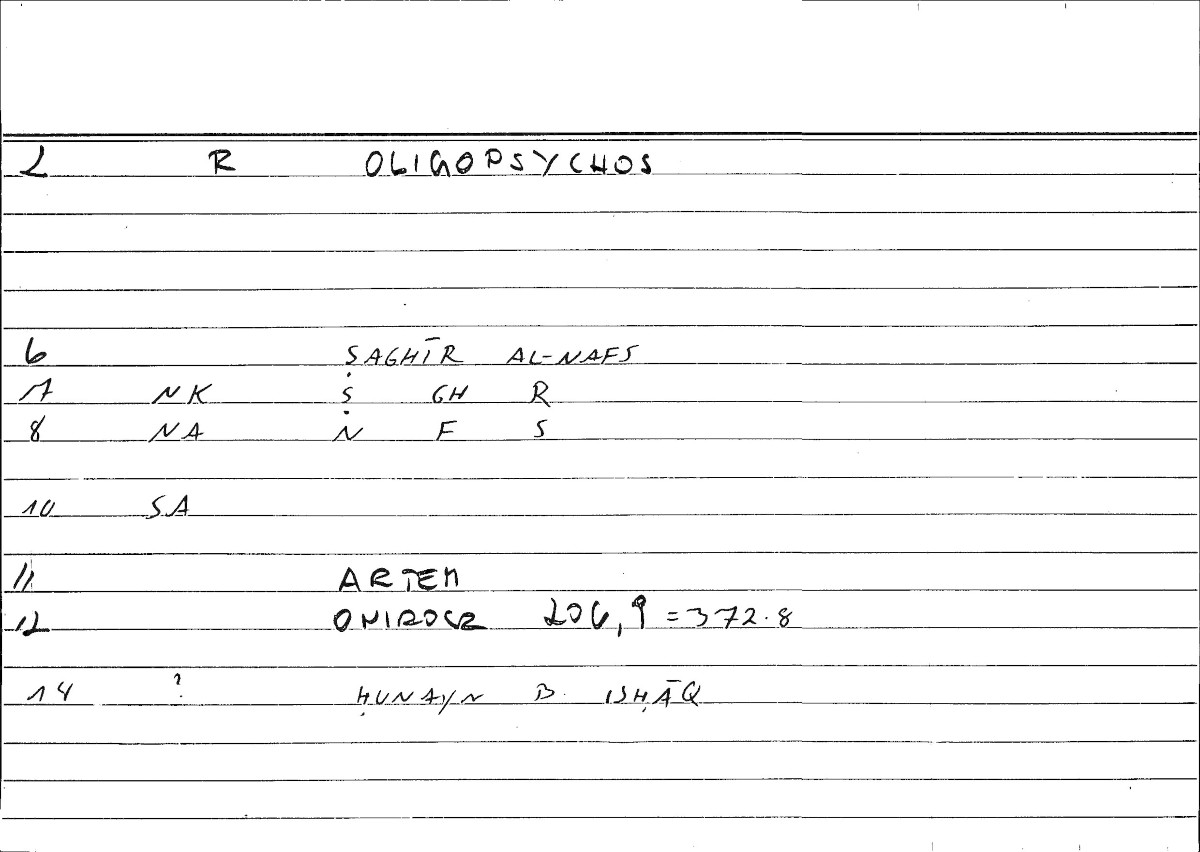 2 R OLIGOPSYCHOS
6 ṢAGHĪR AL-NAFS
7 NK Ṣ GH R
8 NA N F S
10 SA
11 ARTEM
12 ONIROCR 206,9 = 372.8
14 ? ḤUNAYN B. ISḤĀQ